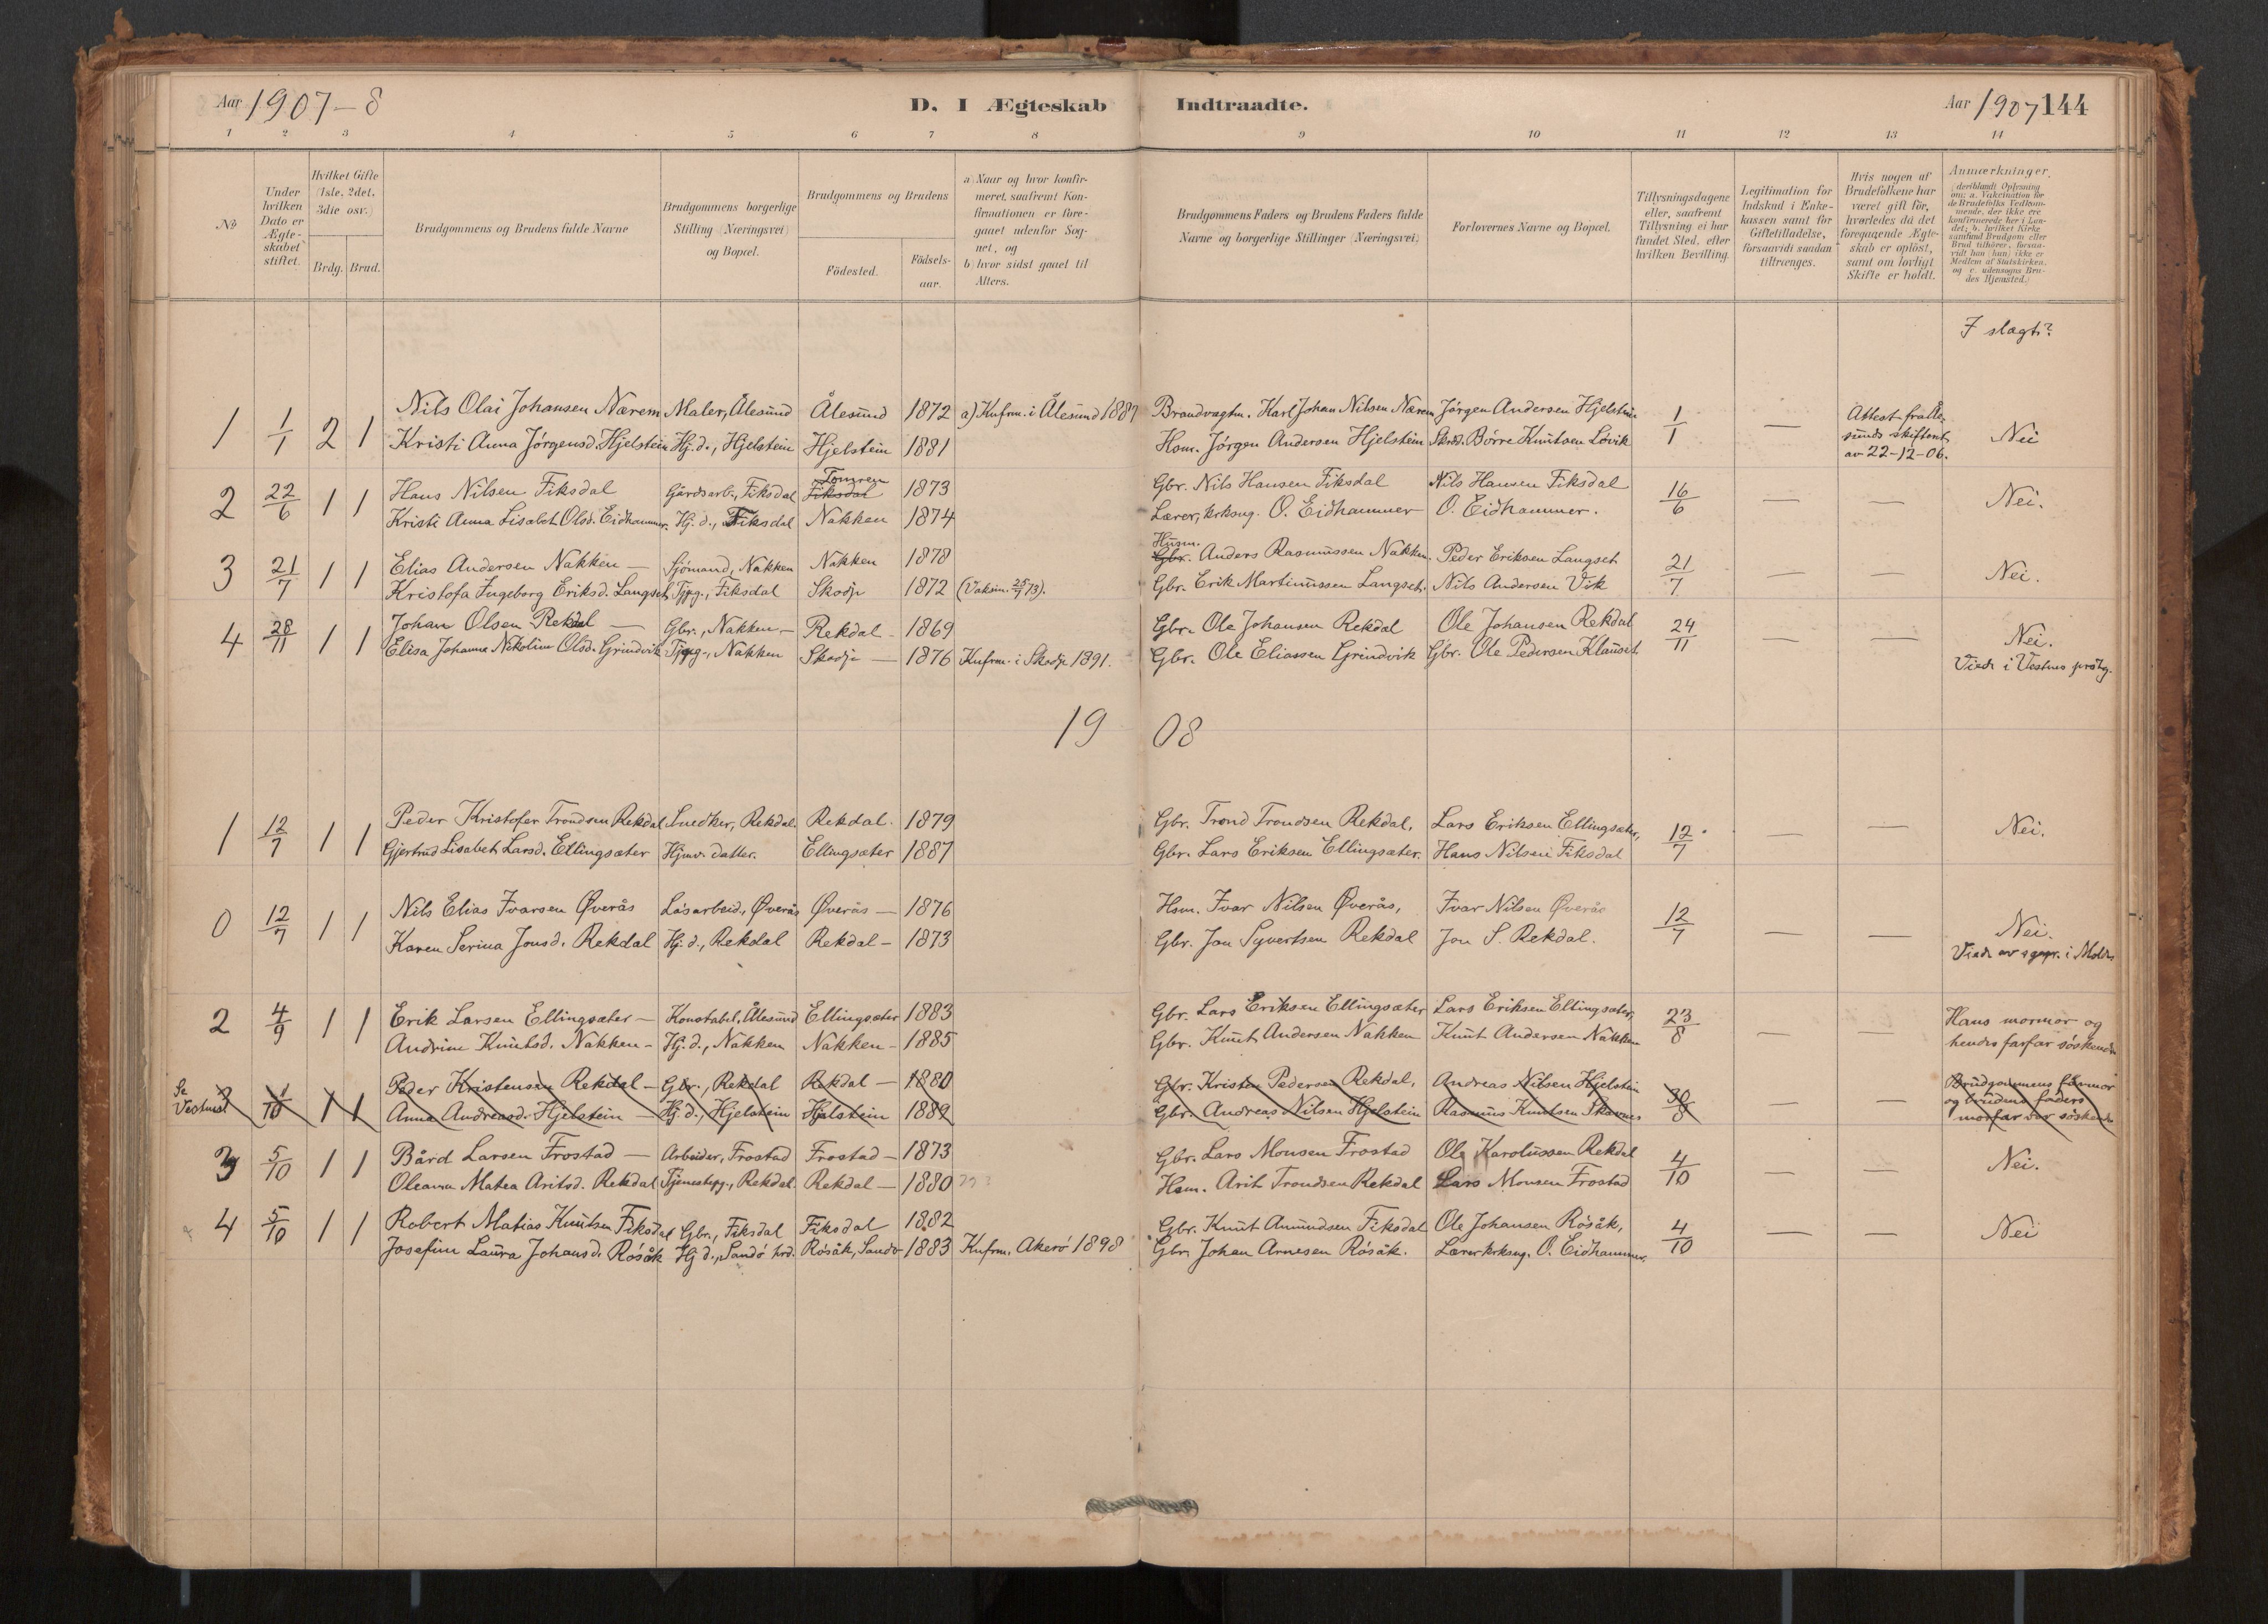 Aar 1907-8
D. I Ægteskab Indtraadte.
Aar 1907 144
1 2 3 4 5 6 7 8 9 10 11 12 13 14
No
Under hvilken Dato er Ægteskabet stiftet.
Hvilket Gifte (1ste, 2det, 3die osv.)
Brdg. Brud.
Brudgommens og Brudens fulde Navne
Brudgommens borgerlige Stilling (Næringsvei) og Bopæl.
Brudgommens og Brudens
Födested.
Födselsaar.
a) Naar og hvor konfirmeret, saafremt Konfirmationen er foregaaet udenfor Sognet, og
b) hvor sidst gaaet til Alters.
Brudgommens Faders og Brudens Faders fulde Navne og borgerlige Stillinger (Næringsvei)
Forlovernes Navne og Bopæl.
Tillysningsdagene eller, saafremt Tillysning ei har fundet Sted, efter hvilken Bevilling.
Legitimation for Indskud i Enkekassen samt for Giftetilladelse, forsaavidt saadan tiltrænges.
Hvis nogen af Brudefolkene har været gift för, hvorledes da det foregaaende Ægteskab er oplöst, samt om lovligt Skifte er holdt.
Anmærkninger.
(deriblandt Oplysning om: a. Vakcination for de Brudefolks Vedkommende, der ikke ere konfirmerede her i Landet; b. hvilket Kirkesamfund Brudgom eller Brud tilhörer, forsaavidt han (hun) ikke er Medlem af Statskirken, og c. udensogns Brudes Hjemsted.)
I slagt?
1 1/1 2 1 Nils Olai Johansen Nærem Maler, Ålesund Ålesund 1872 a) Knfrm. i Ålesund 1887 Brandvagtm. Karl Johan Nilsen Nærem Jörgen Andersen Hjelstein 1/1 — Attest fra Ålesunds skifteret av 22-12-06. Nei
Kristi Anna Jörgensd. Hjelstein Hj.d., Hjelstein Hjelstein 1881 Hsm. Jörgen Andersen Hjelstein Börre Knutsen Lövik
2 22/6 1 1 Hans Nilsen Fiksdal Gårdsarb., Fiksdal Fiksdal Tomren 1873 Gbr. Nils Hansen Fiksdal Nils Hansen Fiksdal 16/6 — — Nei.
Kristi Anna Lisabet Olsd. Eidhammer. Hj. d., Fiksdal Nakken 1874 Lærer, krksng. O. Eidhammer O. Eidhammer.
3 21/7 1 1 Elias Andersen Nakken — Sjömand, Nakken Nakken 1878 Gbr. Husm. Anders Rasmussen Nakken. Peder Eriksen Langset 21/7 — — Nei.
Kristofa Ingeborg Eriksd. Langset Tjpg., Fiksdal Skodje 1872 (Vaksin. 25/7 73). Gbr. Erik Martinussen Langset. Nils Andersen Vik
4 28/11 1 1 Johan Olsen Rekdal — Gbr., Nakken — Rekdal 1869 Gbr. Ole Johansen Rekdal Ole Johansen Rekdal 24/11 — — Nei.
Elisa Johanna Nikoline Olsd. Grindvik Tjpg., Nakken Skodje — 1876 Knfrm. i Skodje 1891. Gbr. Ole Eliassen Grindvik Gbr. Ole Pedersen Klauset Viede i Vestnes prstg.
1908
1 12/7 1 1 Peder Kristofer Trondsen Rekdal Snedker, Rekdal. Rekdal. 1879 Gbr. Trond Trondsen Rekdal, Lars Eriksen Ellingsæter, 12/7 — — Nei.
Gjertrud Lisabet Larsd. Ellingsæter Hjmv. datter. Ellingsæter 1887 Gbr. Lars Eriksen Ellingsæter. Hans Nilsen Fiksdal
0 12/7 1 1 Nils Elias Ivarsen Øverås Lösarbeid., Øverås Øverås — 1876 Hsm. Ivar Nilsen Øverås, Ivar Nilsen Øverås 12/7 — — Nei.
Karen Serina Jonsd. Rekdal Hj. d., Rekdal Rekdal — 1873 Gbr. Jon Syvertsen Rekdal Jon S. Rekdal. Viede av sgnpr. i Molde
2 4/9 1 1 Erik Larsen Ellingsæter — Konstabel, Ålesund Ellingsæter 1883 Gbr. Lars Eriksen Ellingsæter Lars Eriksen Ellingsæter, 23/8 — — Hans mormor og
Andrine Knutsd. Nakken — Hj. d., Nakken Nakken — 1885 Gbr. Knut Andersen Nakken Knut Andersen Nakken hendes farfar söskende
Se Vestnes! 3 1/10 1 1 Peder Kristensen Rekdal — Gbr., Rekdal Rekdal — 1880 Gbr. Kristen Pedersen Rekdal, Andreas Nilsen Hjelstein 30/8 — — Brudgommens farmor og brudens faders
Anna Andreasd. Hjelstein — Hj. d., Hjelstein Hjelstein 1889 Gbr. Andreas Nilsen Hjelstein Rasmus Knutsen Skavnes morfar var söskende
3 5/10 1 1 Bård Larsen Frostad — Arbeider, Frostad Frostad — 1873 Gbr. Lars Monsen Frostad Ole Karolussen Rekdal 4/10 — — Nei.
Oleanna Matea Aritsd. Rekdal Tjenestepg., Rekdal. Rekdal — 1880 Hsm. Arit Trondsen Rekdal Lars Monsen Frostad
4 5/10 1 1 Robert Matias Knutsen Fiksdal Gbr., Fiksdal Fiksdal 1882 Gbr. Knut Amundsen Fiksdal Ole Johansen Rösåk, 4/10 — — Nei
Josefine Laura Johansd. Rösåk Hj d., Sandö hrd. Rösåk, Sandö 1883 Knfrm. Akerö 1898 Gbr. Johan Arnesen Rösåk. Lærer krksng. O. Eidhammer.